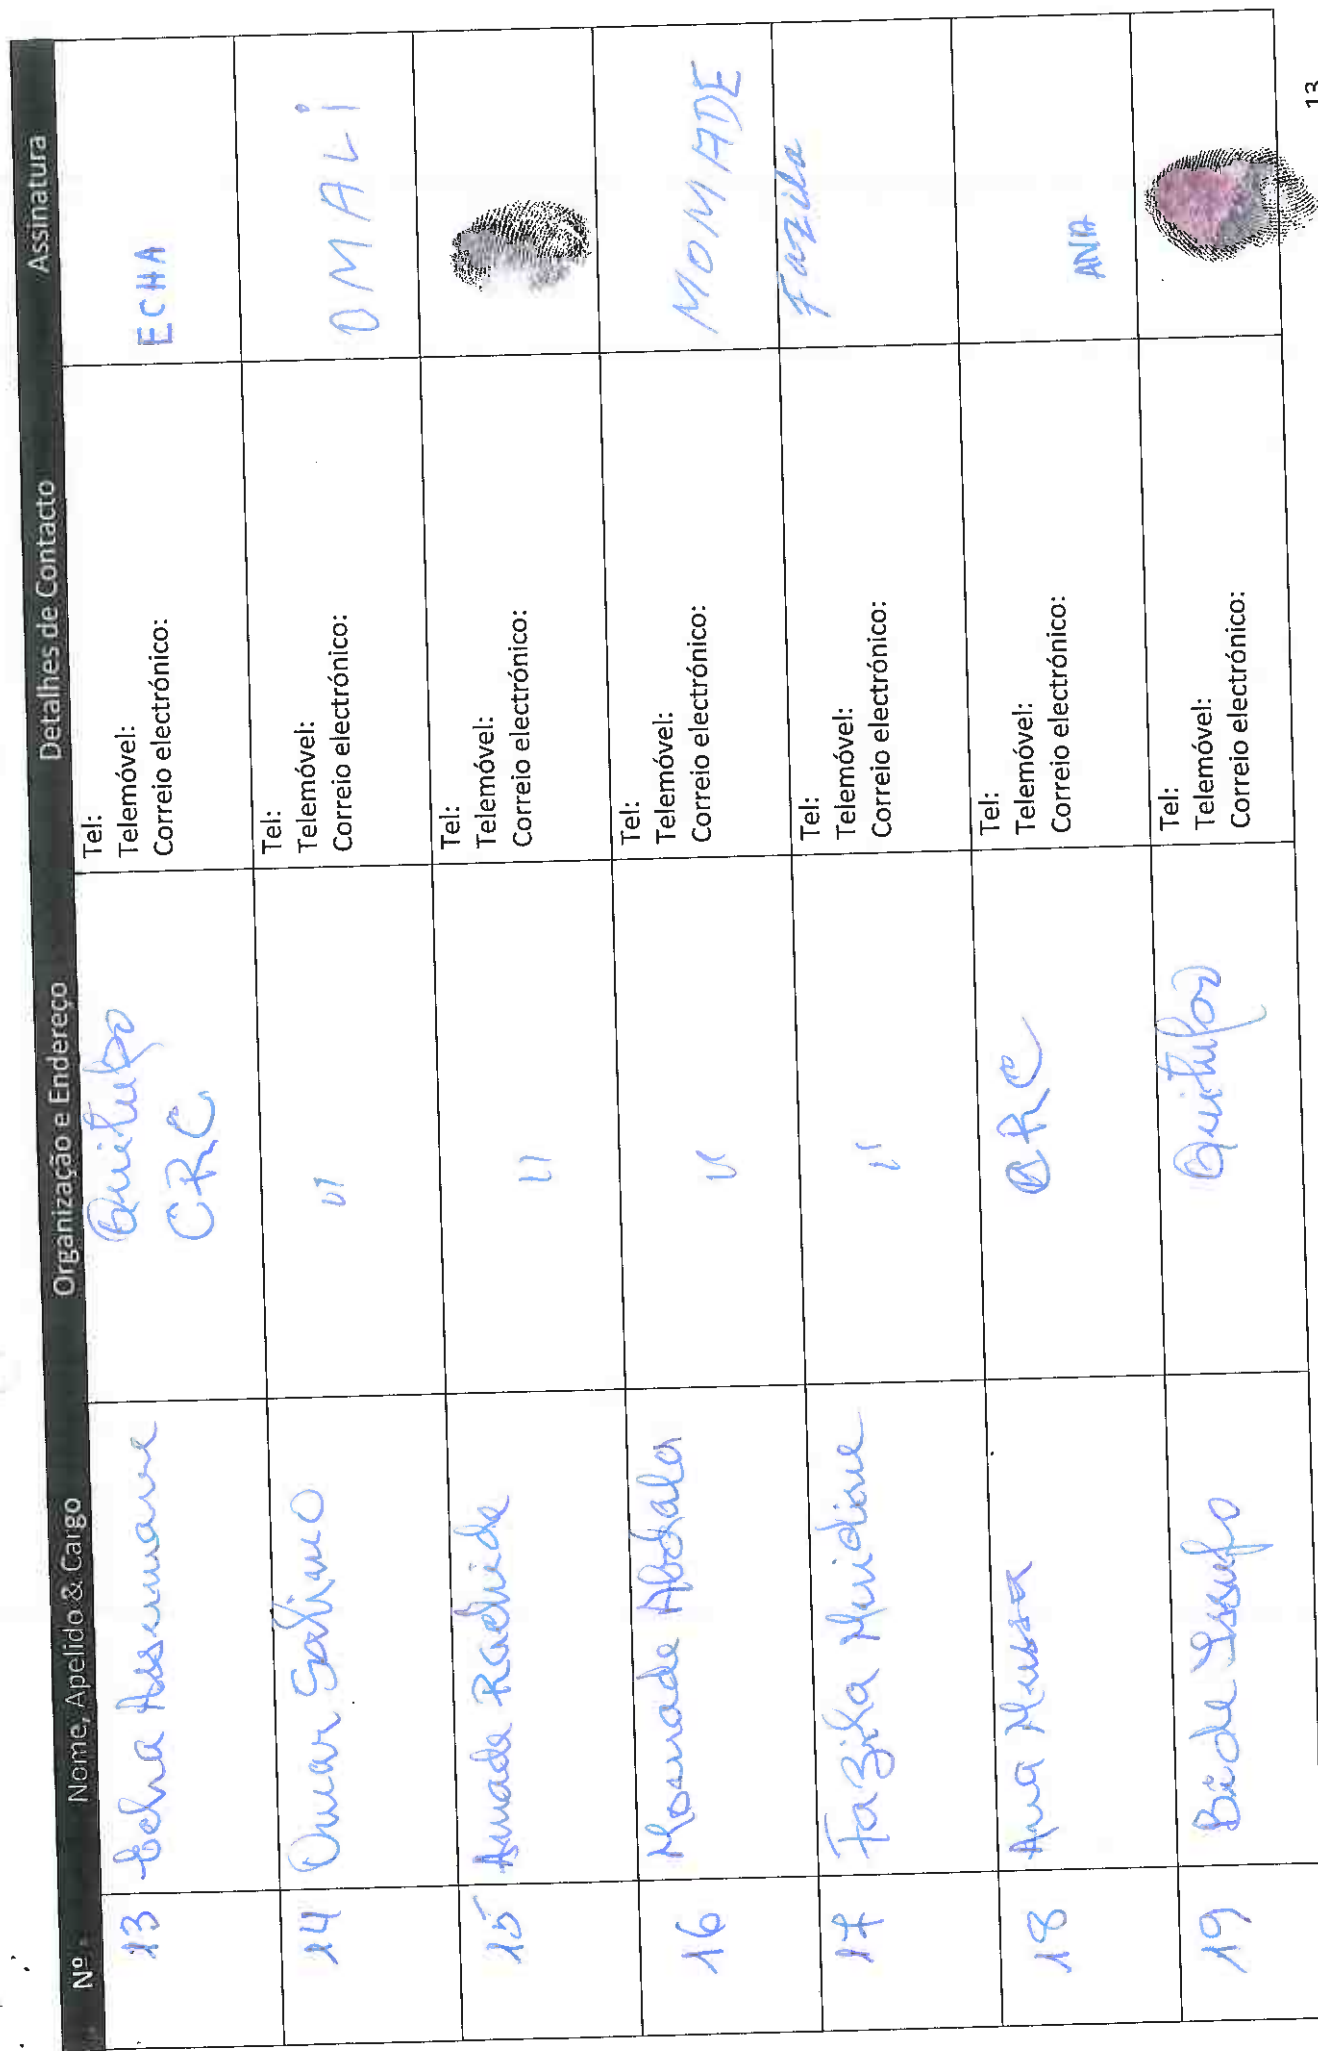 Nº Nome, Apelido & Cargo Organização e Endereço Detalhes de Contacto Assinatura
13 Echa Assumane Quitupo CRC Tel: ECHA
Telemóvel:
Correio electrónico:
14 Omar Salimo " Tel: OMALi
Telemóvel:
Correio electrónico:
15 Amade Rachide " Tel:
Telemóvel:
Correio electrónico:
16 Momade Abdala " Tel: MOMADE
Telemóvel:
Correio electrónico:
17 Fazila Muidine " Tel: Fazila
Telemóvel:
Correio electrónico:
18 Ana Mussa CRC Tel: ANA
Telemóvel:
Correio electrónico:
19 Bide Issufo Quitupo Tel:
Telemóvel:
Correio electrónico:
13